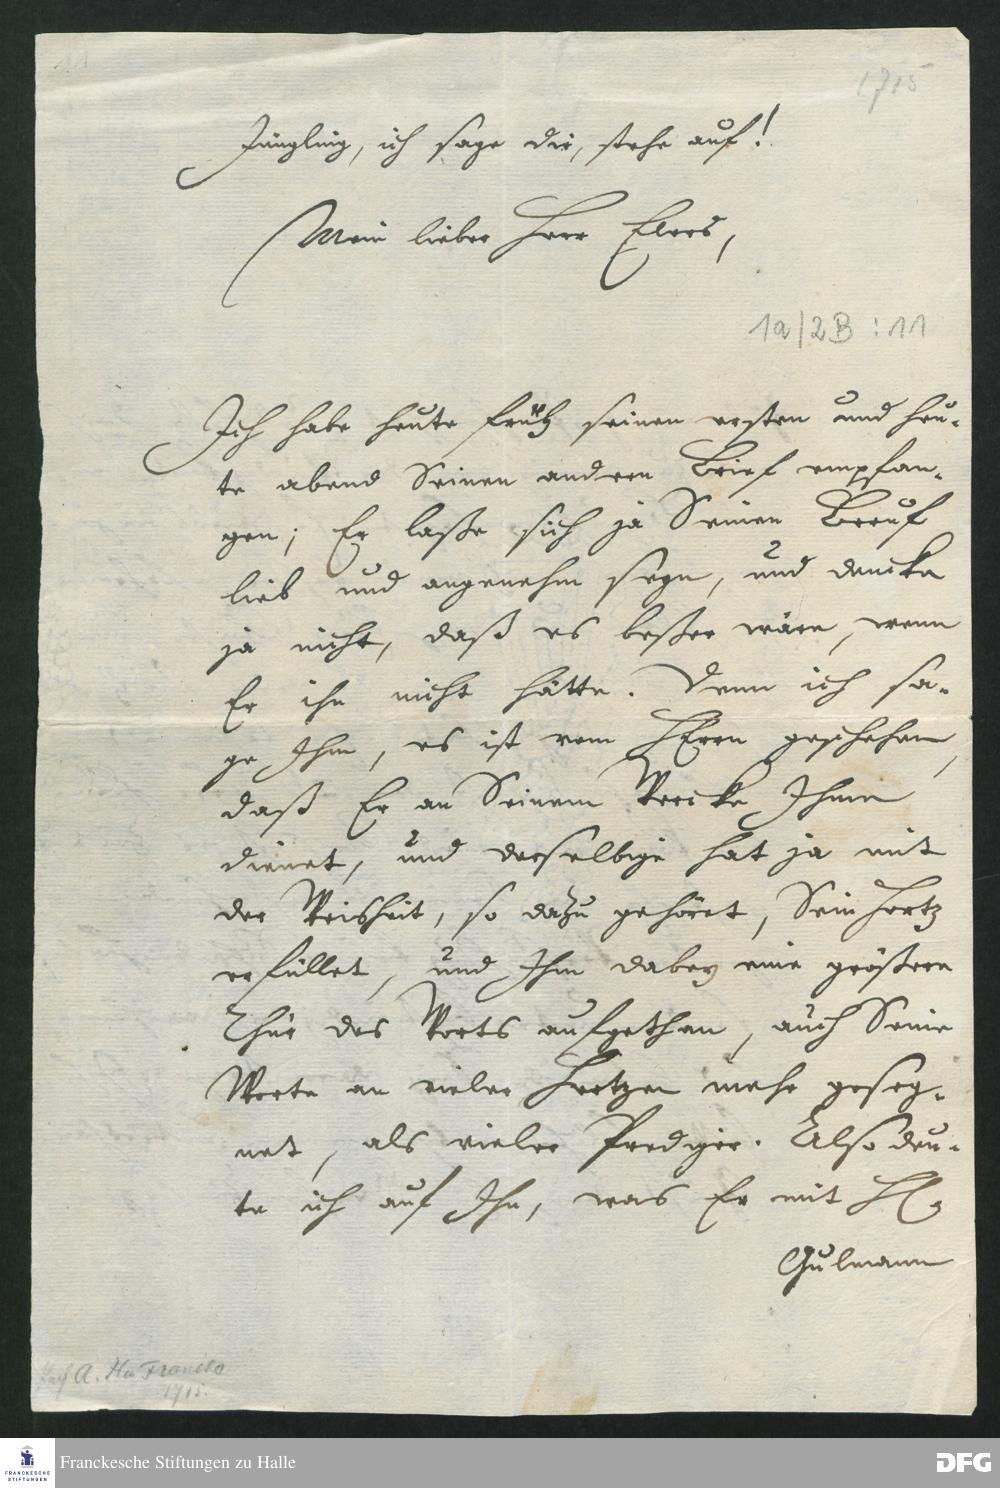 11
1715
Jüngling, ich sage dir, stehe auf!
Mein lieber Herr Elers,
1a/2B:11
Ich habe heute früh seinen ersten und heu-
te abend Seinen andern Brief empfan-
gen; Er laße sich ja Seinen Beruf
lieb und angenehm seyn, und dencke
ja nicht, daß es beßer wäre, wenn
Er ihn nicht hätte. Denn ich sa-
ge Ihm, es ist vom HErrn geschehen,
daß Er an Seinem Wercke Ihme
dienet, und derselbige hat ja mit
der Weisheit, so dazu gehöret, Sein Hertz
erfüllet, und Ihm dabey eine größere
Thür des Worts aufgethan, auch Seine
Worte an vieler Hertzen mehr geseg-
net, als vieler Prediger. Also deu-
te ich auf Ihn, was Er mit H.
Gulmann
A. H. Francke
1715.
FRANCKESCHE
STIFTUNGEN
Franckesche Stiftungen zu Halle
DFG